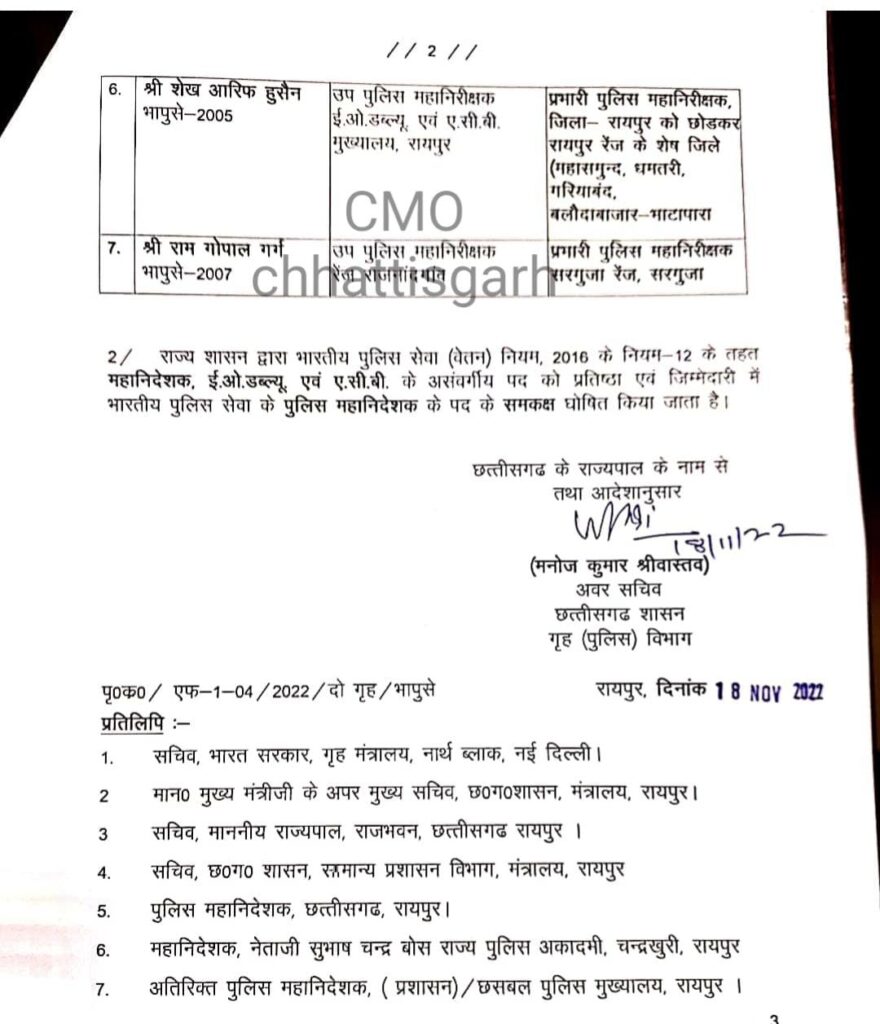 // 2 //
6. श्री शेख आरिफ हुसैन उप पुलिस महानिरीक्षक प्रभारी पुलिस महानिरीक्षक,
भापुसे–2005 ई.ओ.डब्ल्यू. एवं ए.सी.बी. जिला– रायपुर को छोडकर
मुख्यालय, रायपुर रायपुर रेंज के शेष जिले
(महासमुन्द, धमतरी,
गरियाबंद,
बलौदाबाजार–भाटापारा
CMO
7. श्री राम गोपाल गर्ग उप पुलिस महानिरीक्षक प्रभारी पुलिस महानिरीक्षक
भापुसे–2007 रेंज राजनांदगांव सरगुजा रेंज, सरगुजा
chhattisgarh
2/ राज्य शासन द्वारा भारतीय पुलिस सेवा (वेतन) नियम, 2016 के नियम–12 के तहत
महानिदेशक, ई.ओ.डब्ल्यू. एवं ए.सी.बी. के असंवर्गीय पद को प्रतिष्ठा एवं जिम्मेदारी में
भारतीय पुलिस सेवा के पुलिस महानिदेशक के पद के समकक्ष घोषित किया जाता है।
छत्तीसगढ के राज्यपाल के नाम से
तथा आदेशानुसार
18/11/22
(मनोज कुमार श्रीवास्तव)
अवर सचिव
छत्तीसगढ शासन
गृह (पुलिस) विभाग
पृ0क0/ एफ–1–04/2022/दो गृह/भापुसे रायपुर, दिनांक 18 NOV 2022
प्रतिलिपि :–
1. सचिव, भारत सरकार, गृह मंत्रालय, नार्थ ब्लाक, नई दिल्ली।
2 मान0 मुख्य मंत्रीजी के अपर मुख्य सचिव, छ0ग0शासन, मंत्रालय, रायपुर।
3 सचिव, माननीय राज्यपाल, राजभवन, छत्तीसगढ रायपुर ।
4. सचिव, छ0ग0 शासन, सामान्य प्रशासन विभाग, मंत्रालय, रायपुर
5. पुलिस महानिदेशक, छत्तीसगढ, रायपुर।
6. महानिदेशक, नेताजी सुभाष चन्द्र बोस राज्य पुलिस अकादमी, चन्द्रखुरी, रायपुर
7. अतिरिक्त पुलिस महानिदेशक, ( प्रशासन)/छसबल पुलिस मुख्यालय, रायपुर ।
3